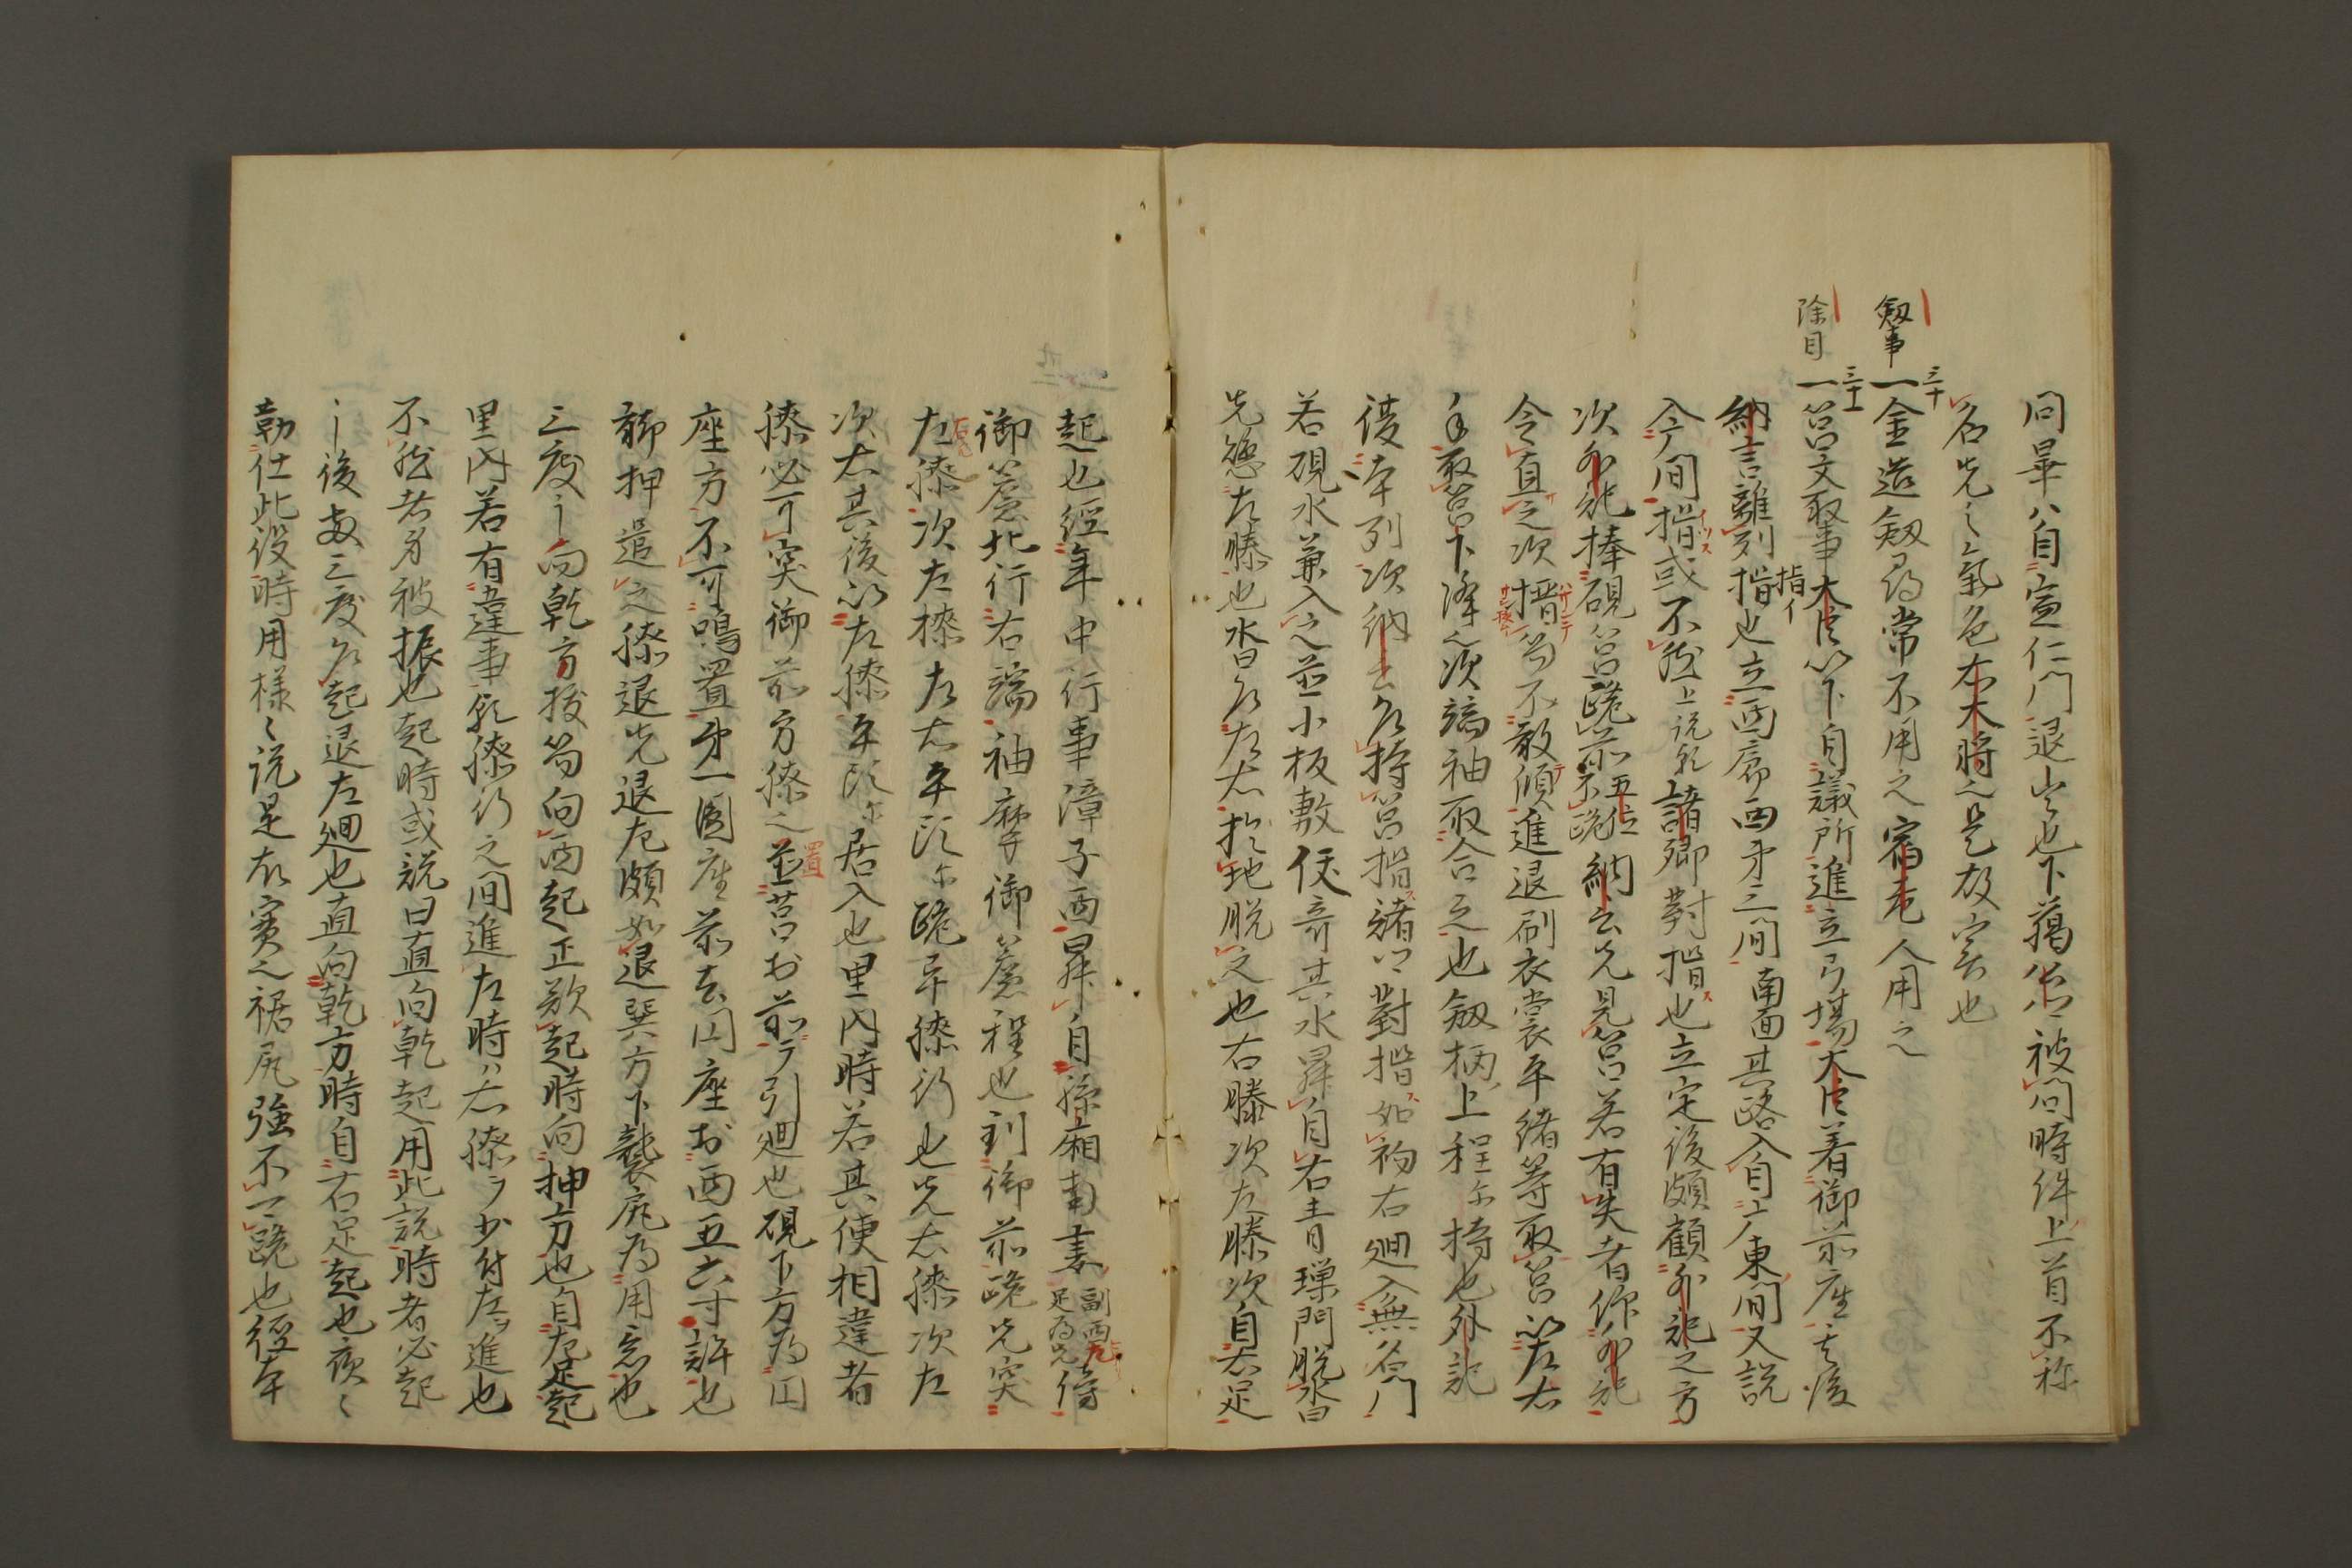 問畢ハ自宣仁門退出也下﨟公卿被問時件上首不称
名先之氣色右大将之是故実也
釼事
三十
一金造釼尋常不用之宿老人用之
除目
三十一
一筥文取事大臣以下自議所進立弓場大臣着御前座之後
納言離列揖也立西廊西第三間南面其路入自上東間又説
揖イ
今間揖或不然上説乱諸卿對揖也立定後頗顧外記之方
次外記捧硯筥跪前五位不跪納言先見筥若有失者仰外記
令直之次搢笏不敢傾進退刷衣裳平緒等取筥以左右
手取筥下降之次端袖取合之也釼柄上程尓持也外記
後本列次納言乍持筥揖諸卿對揖如初右廻入無名門
若硯水兼入之並小板敷傍奇其水昇自右青璅門脱沓
先懸左膝也沓乍左右於地脱之也右膝次左膝次自右足
起也経年中行事障子西昇自孫廂南妻副西傍
足為先
御簾北行右端袖摩御簾程也到御前跪先突
左膝次右膝左右平頭尓跪畢膝行也先右膝次左
次右其後以左膝平頭尓居入也里内時若其便相違者
膝必可突御前方膝也並筥於前ヲ引廻也硯下方為円
置
座方不可鳴置第一圓座前去円座於西五六寸許也
聊押遣之膝退先退左頗如退巽方下襲尻為用意也
三度之向乾方抜笏向西起正歟起時向押方也自左足起
里内若有違事乱膝行之間進左時ハ右膝ヲ少付左ヲ進也
不然者身被振也起時或説曰直向乾起用此説時者必起
之後両三度乍起退左廻也直向乾方時自右足起也夜々
勤仕此役時用様々説是故実也裾尻強不一跪也経本